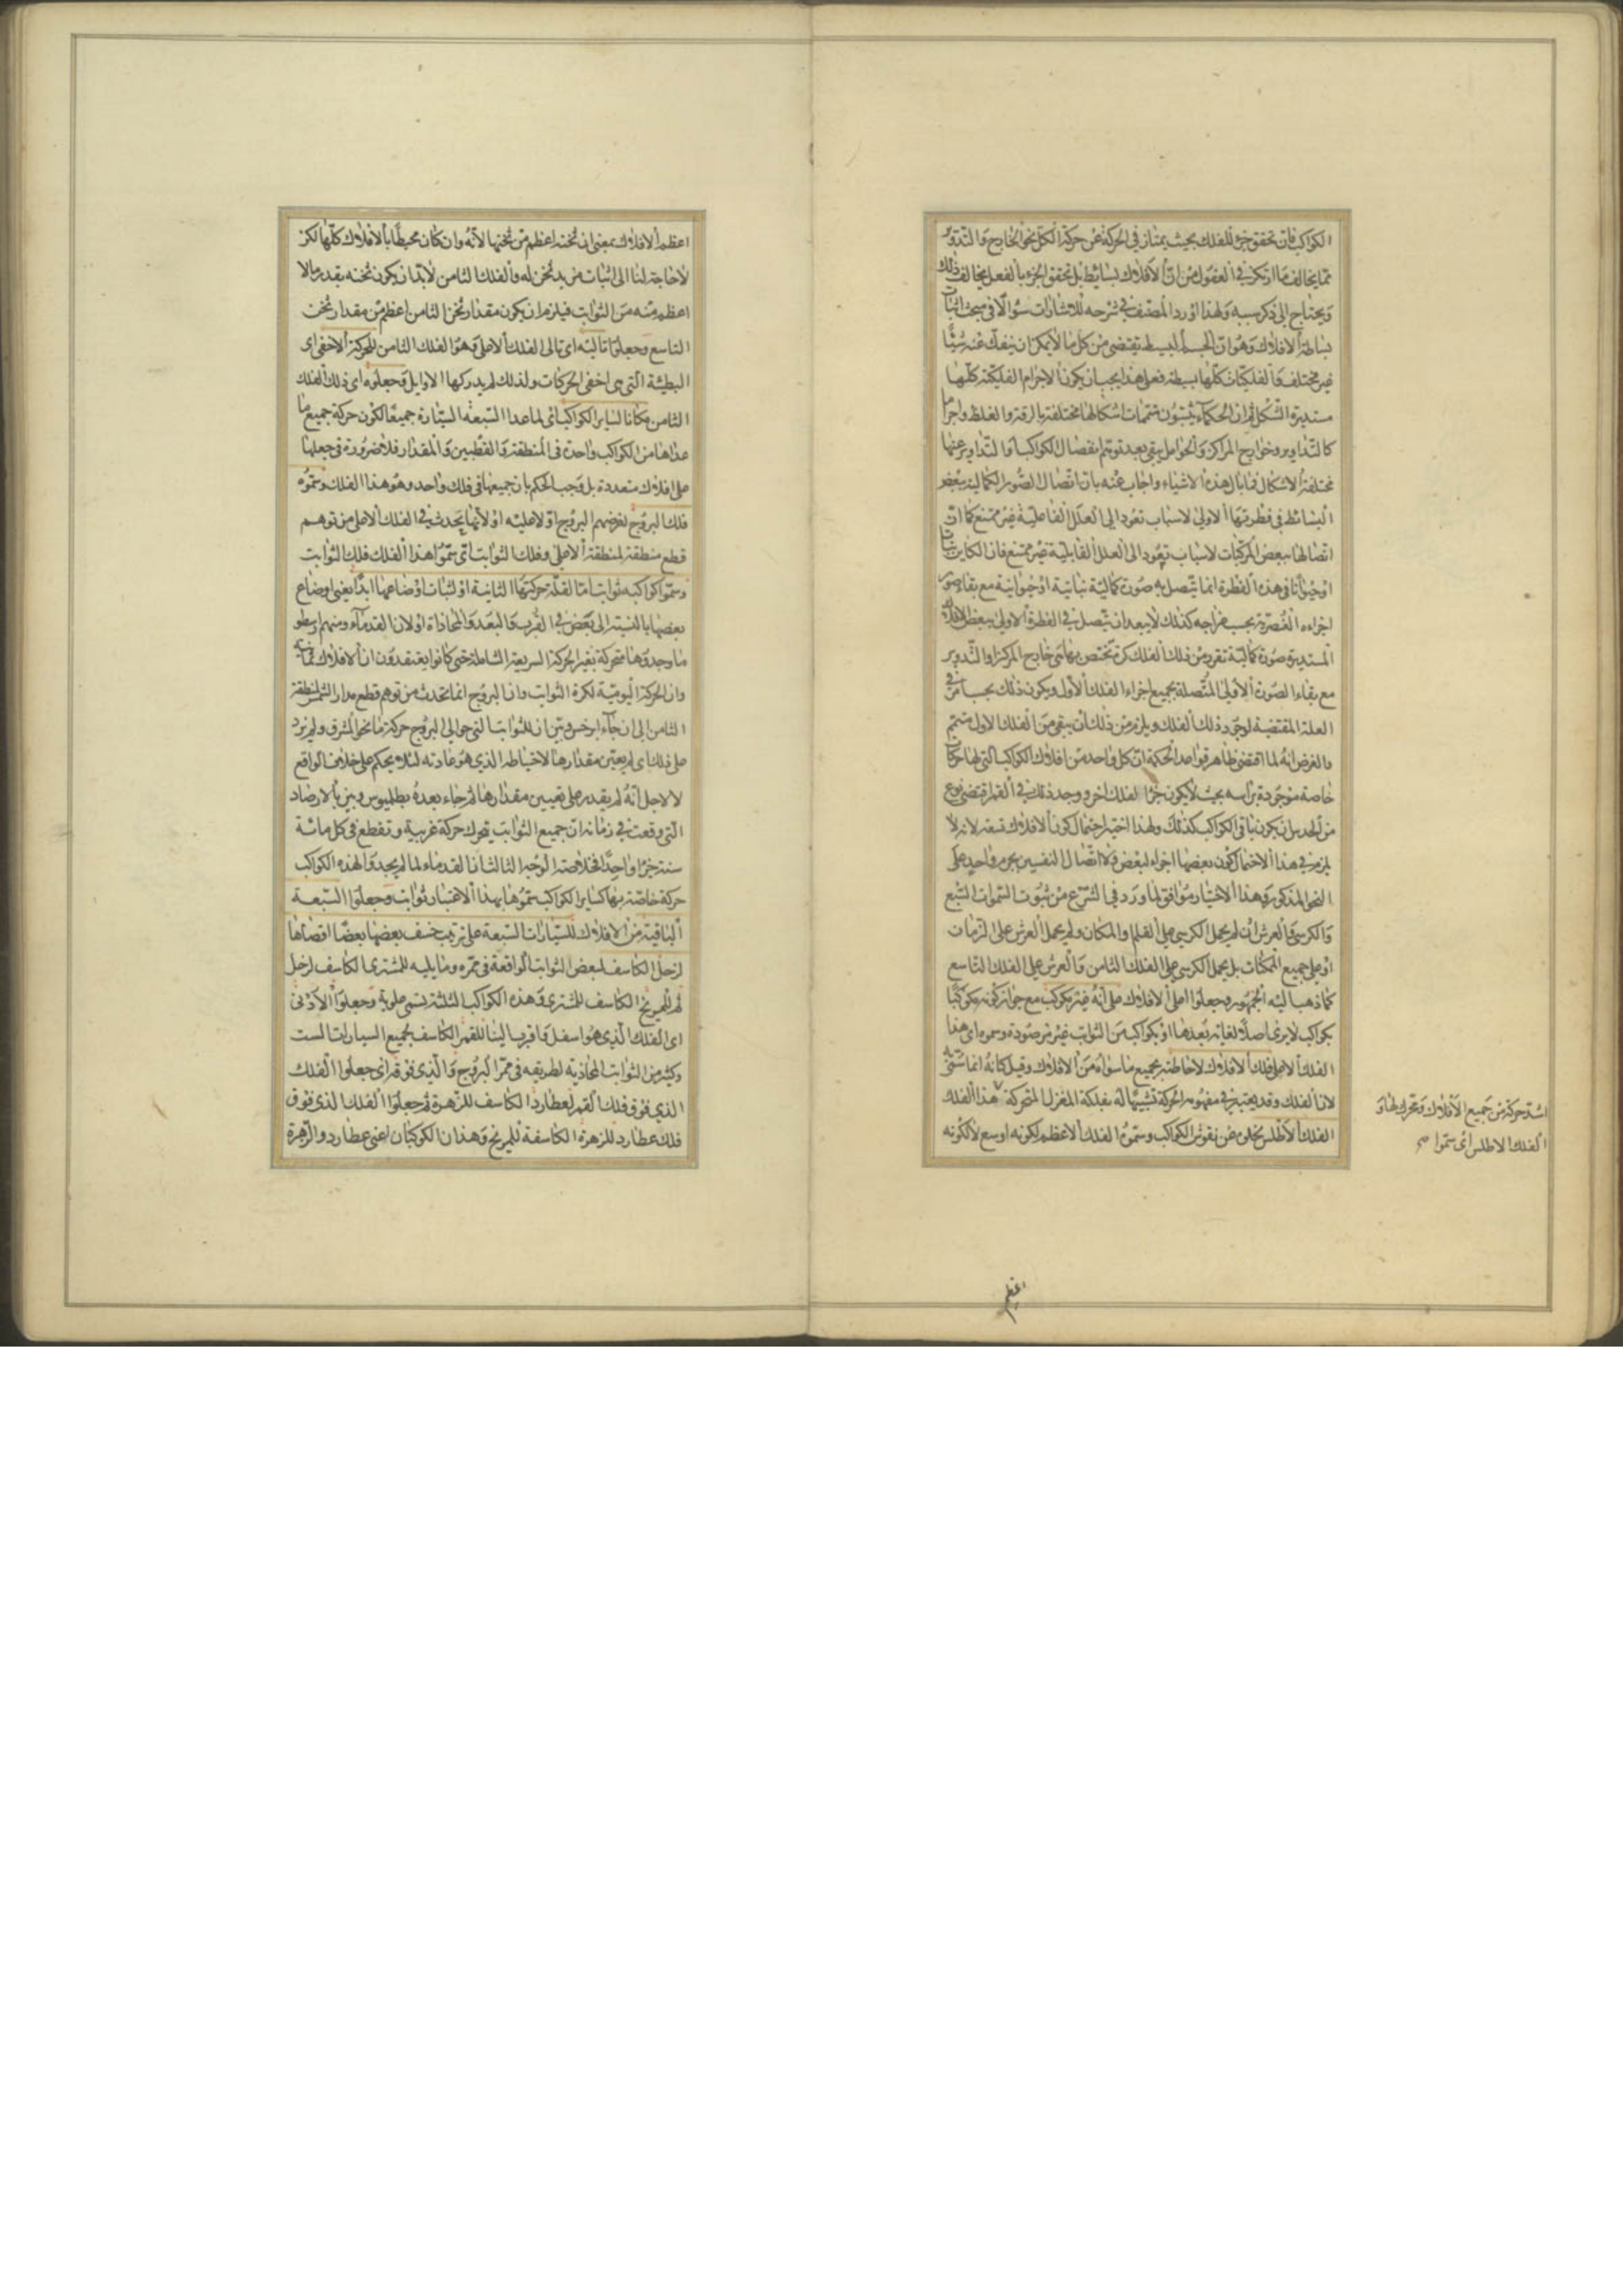 الكواكب فان تحقق جزء للفلك بحيث يمتاز فى الحركة عن حركة الكل نحو الخارج والتدوير
مما يخالف ما ارتكز فى العقول من ان الافلاك بسائط بل تحقق الجزء بالفعل يخالف ذلك
ويحتاج الى ذكر سببه ولهذا اورد المصنف فى شرحه للاشارات سؤالا فى مبحث اثبات
بساطة الافلاك وهو ان الجسم البسيط يقتضى من كل ما لا يمكن ان ينفك عنه شيئا
غير مختلف والفلكيات كلها بسيطة فعلى هذا يجب ان يكون الاجرام الفلكية كلها
مستديرة الشكل ثم ان الحكماء يثبتون متممات اشكالها مختلفة بالرقة والغلظ واجراما
كالتداوير وخوارج المراكز والحوامل يبقى بعد توهم انفصال الكواكب او التداوير عنها
مختلفة الاشكال فما بال هذه الاشياء واجاب عنه بان اتصال الصور الكمالية ببعض
البسائط فى فطرتها الاولى لاسباب تعود الى العلل الفاعلية غير ممتنع كما ان
اتصالها ببعض المركبات لاسباب تعود الى العلل القابلية غير ممتنع فان الكاين نباتا
او حيوانا فى هذه الفطرة انما يتصل به صورة كمالية نباتية او حيوانية مع بقاء صور
اجزاءه العنصرية بحسب مزاجه كذلك لا يبعد ان يتصل فى الفطرة الاولى ببعض الافلاك
المستديرة صورة كمالية تفرز من ذلك الفلك كرة تختص بها هى خارج المركز او التدوير
مع بقاء الصورة الاولى المتصلة بجميع اجزاء الفلك الاول ويكون ذلك بحسب امر فى
العلة المقتضية لوجود ذلك الفلك ويلزم من ذلك ان يبقى من الفلك الاول متمم
والغرض انه لما اقتضى ظاهر قواعد الحكمة ان كل واحد من افلاك الكواكب التى لها حركات
خاصة موجودة براسه بحيث لا يكون جزءا لفلك اخر ووجد ذلك فى القمر اقتضى نوع
من الحدس ان يكون باقى الكواكب كذلك ولهذا اختير احتمال كون الافلاك تسعة لانه لا
يلزم فى هذا الاحتمال كون بعضها اجزاء لبعض ولا اتصال النفسين بجرم واحد على
النحو المذكور وهذا الاختيار موافق لما ورد فى الشرع من ثبوت السموات السبع
والكرسى والعرش ان لم يحمل الكرسى على العلم والمكان ولم يحمل العرش على الزمان
او على جميع الممكنات بل يحمل الكرسى على الفلك الثامن والعرش على الفلك التاسع
كما ذهب اليه الجمهور وجعلوا اعلى الافلاك على انه غير مكوكب مع جواز كونه مكوكبا
بكواكب لا يرى اصلا لغاية بعدها او بكواكب من الثوابت غير مرصودة وسموه اى هذا
الفلك الاعلى فلك الافلاك لاحاطته بجميع ما سواه من الافلاك وقيل كانه انما سمى به
لان الفلك وقد يعتبر فى مفهومه الحركة تشبيها له بفلكة المغزل المتحركة هذا الفلك
الفلك الاطلس لخلوه عن نقوش الكواكب وسموه الفلك الاعظم لكونه اوسع لا لكونه
اشد حركة من جميع الافلاك ومحرك لها و
الفلك الاطلس اى سموا صح
اعظم
اعظم الافلاك بمعنى ان ثخنه اعظم من ثخنها لانه وان كان محيطا بالافلاك كلها لكن
لا حاجة لنا الى اثبات مزيد ثخن له والفلك الثامن لا بد ان يكون ثخنه بقدر ما لا
اعظم منه من الثوابت فيلزم ان يكون مقدار ثخن الثامن اعظم من مقدار ثخن
التاسع وجعلوا تاليه اى تالى الفلك الاعلى وهو الفلك الثامن للحركة الاخفى اى
البطيئة التى هى اخفى الحركات ولذلك لم يدركها الاوايل وجعلوه اى ذلك الفلك
الثامن مكانا لساير الكواكب اى لما عدا السبعة السيارة جميعا لكون حركة جميع ما
عداها من الكواكب واحدة فى المنطقة والقطبين والمقدار فلا ضرورة فى جعلها
على افلاك متعددة بل وجب الحكم بان جميعها فى فلك واحد وهو هذا الفلك وسموه
فلك البروج لفرضهم البروج اولا عليه او لانها يحدث فى الفلك الاعلى من توهم
قطع منطقته لمنطقة الاعلى وفلك الثوابت اى سموا هذا الفلك فلك الثوابت
وسموا كواكبه ثوابت اما لقلة حركتها الثانية او لثبات اوضاعها ابدا يعنى اوضاع
بعضها بالنسبة الى بعض فى القرب والبعد والمحاذاة او لان القدماء ومنهم ارسطو
ما وجدوها متحركة بغير الحركة السريعة الشاملة حتى كانوا يعتقدون ان الافلاك ثمانية
وان الحركة اليومية لكرة الثوابت وان البروج انما تحدث من توهم قطع مدار الشمس لمنطقة
الثامن الى ان جاء ابرخس وتبين ان للثوابت التى حوالى البروج حركة ما نحو المشرق ولم يزد
على ذلك اى لم يعين مقدارها لاحتياطه الذى هو عادته لئلا يحكم على خلاف الواقع
لا لاجل انه لم يقدر على تعيين مقدارها ثم جاء بعده بطلميوس وبين بالارصاد
التى وقعت فى زمانه ان جميع الثوابت يتحرك حركة غربية وتقطع فى كل مائة
سنة جزءا واحدا فخلاصة الوجه الثالث ان القدماء لما لم يجدوا لهذه الكواكب
حركة خاصة بها كساير الكواكب سموها بهذا الاعتبار ثوابت وجعلوا السبعة
الباقية من الافلاك للسيارات السبعة على ترتيب خسف بعضها بعضا اقصاها
لزحل الكاسف لبعض الثوابت الواقعة فى ممره وما يليه للمشترى الكاسف لزحل
ثم للمريخ الكاسف للمشترى وهذه الكواكب الثلثة تسمى علوية وجعلوا الادنى
اى الفلك الذى هو اسفل واقرب الينا للقمر الكاسف لجميع السيارات الست
وكثير من الثوابت المحاذية لطريقه فى ممر البروج والذى فوقه اى جعلوا الفلك
الذى فوق فلك القمر لعطارد الكاسف للزهرة ثم جعلوا الفلك الذى فوق
فلك عطارد للزهرة الكاسفة للمريخ وهذان الكوكبان اعنى عطارد والزهرة